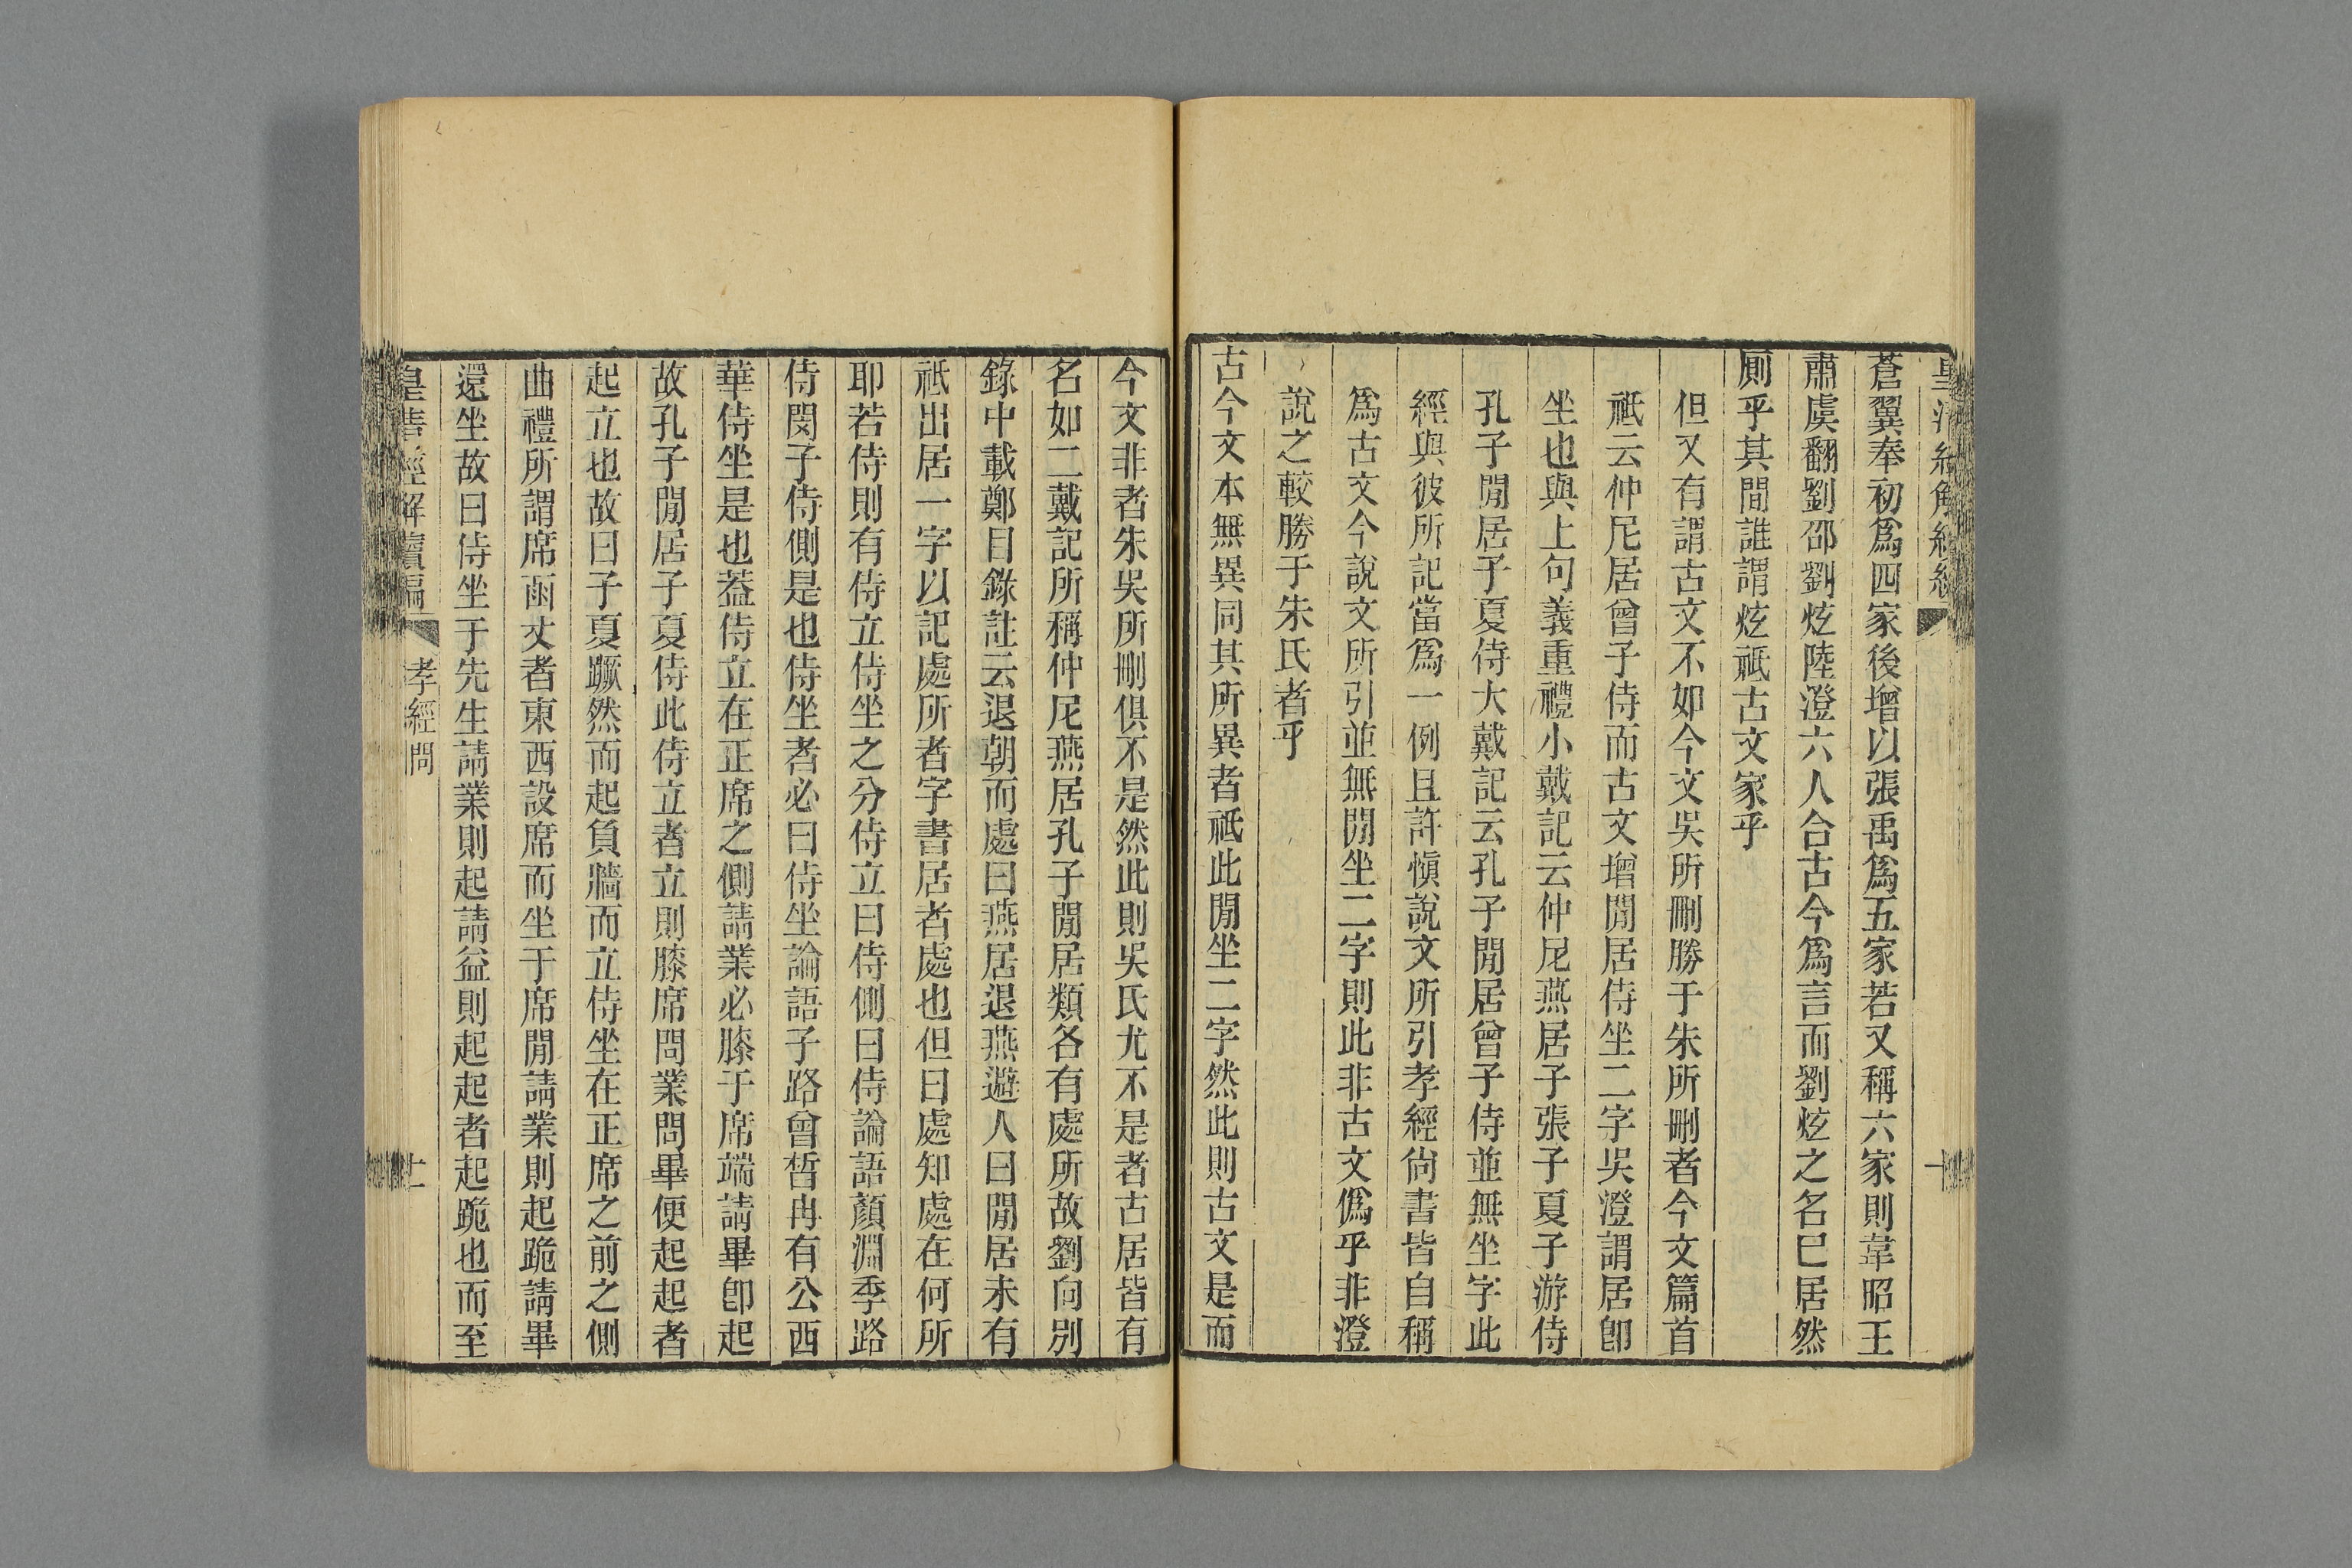 蒼翼奉初爲四家後增以張禹爲五家若又稱六家則韋昭王
肅虞翻劉邵劉炫陸澄六人合古今爲言而劉炫之名已居然
厠乎其間誰謂炫祗古文家乎
但又有謂古文不如今文吳所刪勝于朱所刪者今文篇首
祗云仲尼居曾子侍而古文增閒居侍坐二字吳澄謂居卽
坐也與上句義重禮小戴記云仲尼燕居子張子夏子游侍
孔子閒居子夏侍大戴記云孔子閒居曾子侍並無坐字此
經與彼所記當爲一例且許愼說文所引孝經尙書皆自稱
爲古文今說文所引並無閒坐二字則此非古文僞乎非澄
說之較勝于朱氏者乎
古今文本無異同其所異者祗此閒坐二字然此則古文是而
今文非者朱吳所刪俱不是然此則吳氏尤不是者古居皆有
名如二戴記所稱仲尼燕居孔子閒居類各有處所故劉向別
錄中載鄭目錄註云退朝而處曰燕居退燕避人曰閒居未有
祗出居一字以記處所者字書居者處也但曰處知處在何所
耶若侍則有侍立侍坐之分侍立曰侍側曰侍論語顏淵季路
侍閔子侍側是也侍坐者必曰侍坐論語子路曾晳冉有公西
華侍坐是也葢侍立在正席之側請業必膝于席端請畢卽起
故孔子閒居子夏侍此侍立者立則膝席問業問畢便起起者
起立也故曰子夏蹶然而起負牆而立侍坐在正席之前之側
曲禮所謂席函丈者東西設席而坐于席閒請業則起跪請畢
還坐故曰侍坐于先生請業則起請益則起起者起跪也而至
皇淸經解續編
孝經問